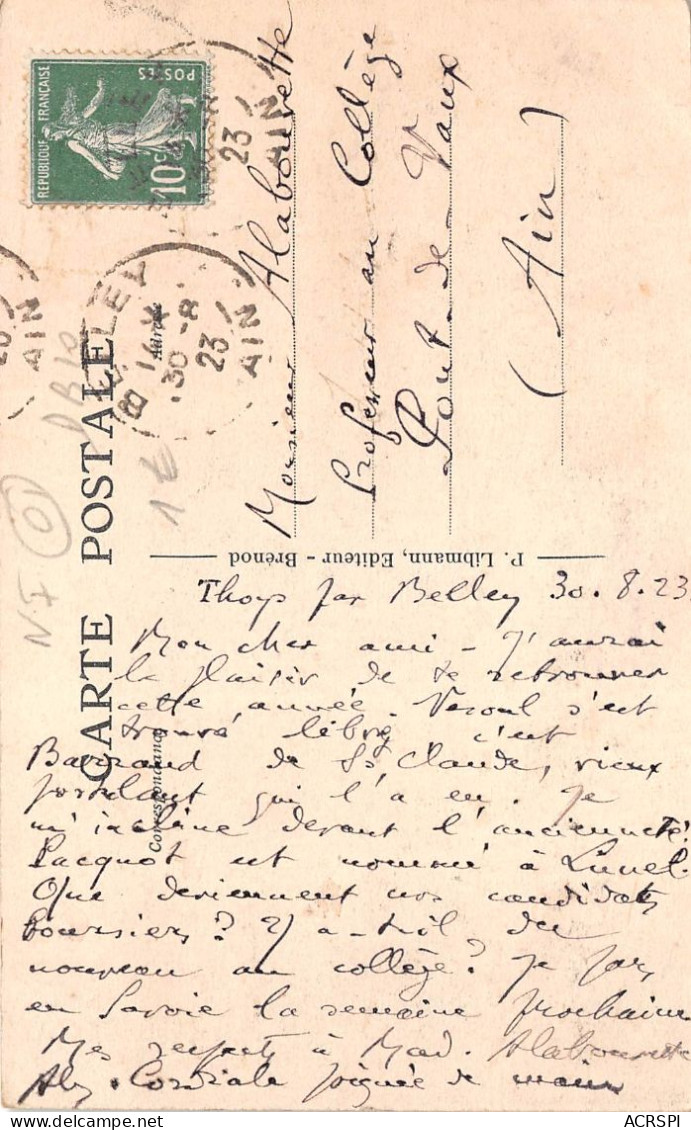 REPUBLIQUE FRANÇAISE
POSTES
10c
23
AIN
BELLEY
AIN
30 - 8
23
AIN
CARTE POSTALE
Correspondance
Adresse
1 €
NF
Monsieur Alabouvette
Professeur au Collège
Pont-de-Vaux
(Ain)
P. Libmann, Editeur - Brénod
Thoys par Belley 30.8.23
Mon cher ami - J'aurai
le plaisir de te retrouver
cette année. Vesoul s'est
trouvé libre, c'est
Barrand de St Claude, vieux
postulant qui l'a eu. Je
m'incline devant l'ancienneté.
Pacquot est nommé à Lunel.
Que deviennent nos candidats
boursiers? Y a-t-il du
nouveau au collège? Je pars
en Savoie la semaine prochaine
Mes respects à Mad. Alabouvette
Cordiale poignée de main
ACRSPI